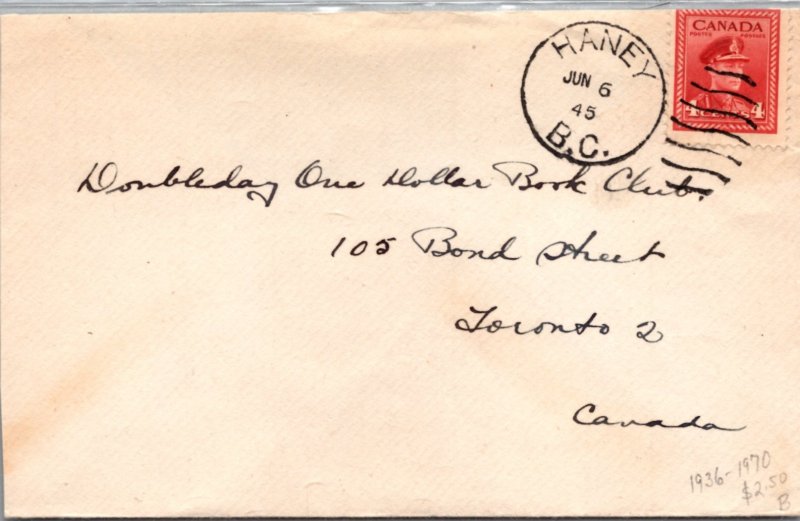 HANEY
JUN 6
45
B.C.
CANADA
POSTES POSTAGE
4 CENTS 4
Doubleday One Dollar Book Club.
105 Bond Street
Toronto 2
Canada
1936-1970
$2.50
B